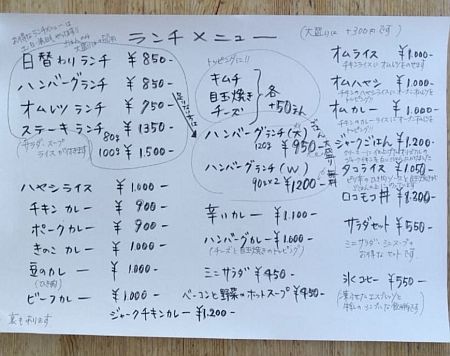 ランチメニュー
(大盛りは +300円です)
お得なランチメニューは
日替わりランチ ¥850-
ハンバーグランチ ¥850-
オムレツランチ ¥950-
ステーキランチ 80g ¥1350-
100g ¥1,500-
サラダ、スープ
ライスが付きます
トッピングに!!
キムチ
目玉焼き
チーズ
各
+50
ハンバーグランチ(大)
120g ¥950-
ハンバーグランチ(W)
90×2 ¥1200-
大盛り無料
オムライス ¥1,000-
オムハヤシ ¥1,000-
オムカレー ¥1,000-
ジャークごはん ¥1,200-
タコライス ¥1,050-
ロコモコ丼 ¥1,200-
ハヤシライス ¥1,000-
チキンカレー ¥900-
ポークカレー ¥900-
きのこカレー ¥1,000-
豆のカレー ¥1,000-
(ひき肉)
ビーフカレー ¥1,000-
辛いカレー ¥1,100-
ハンバーグカレー ¥1,000-
(チーズと目玉焼きのトッピング)
ミニサラダ ¥450-
ベーコンと野菜のホットスープ ¥450-
ジャークチキンカレー ¥1,200-
サラダセット ¥550-
ミニサラダ、ミニスープの
お得なセットです
氷コーヒー ¥550-
裏も有ります